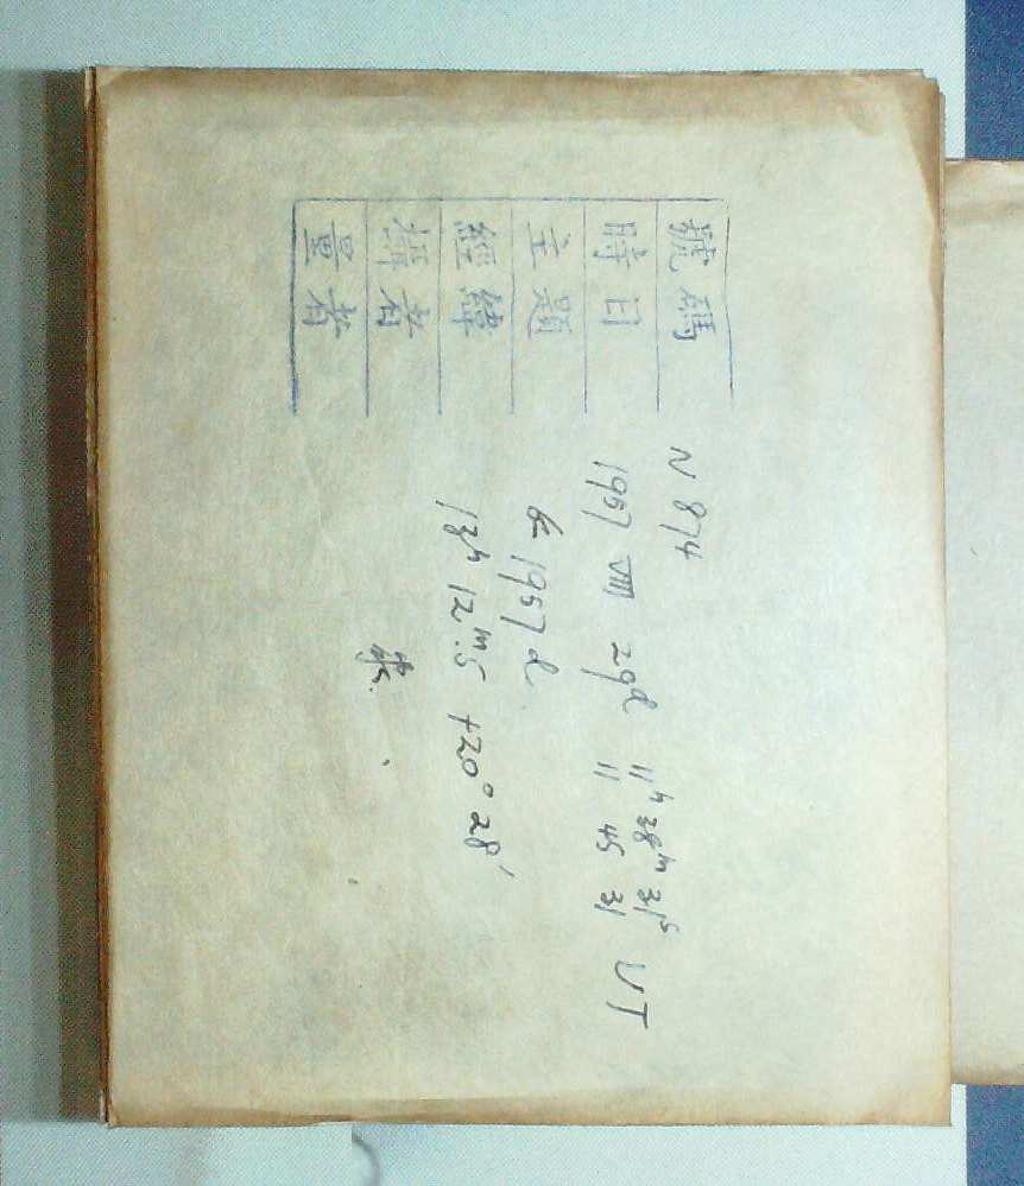 號碼 N 874
時日 1957 VIII 29d 11h 38m 31s UT
11 45 31
主題 1957 d
經緯 13h 12m.5 +20° 28′
攝者
量者